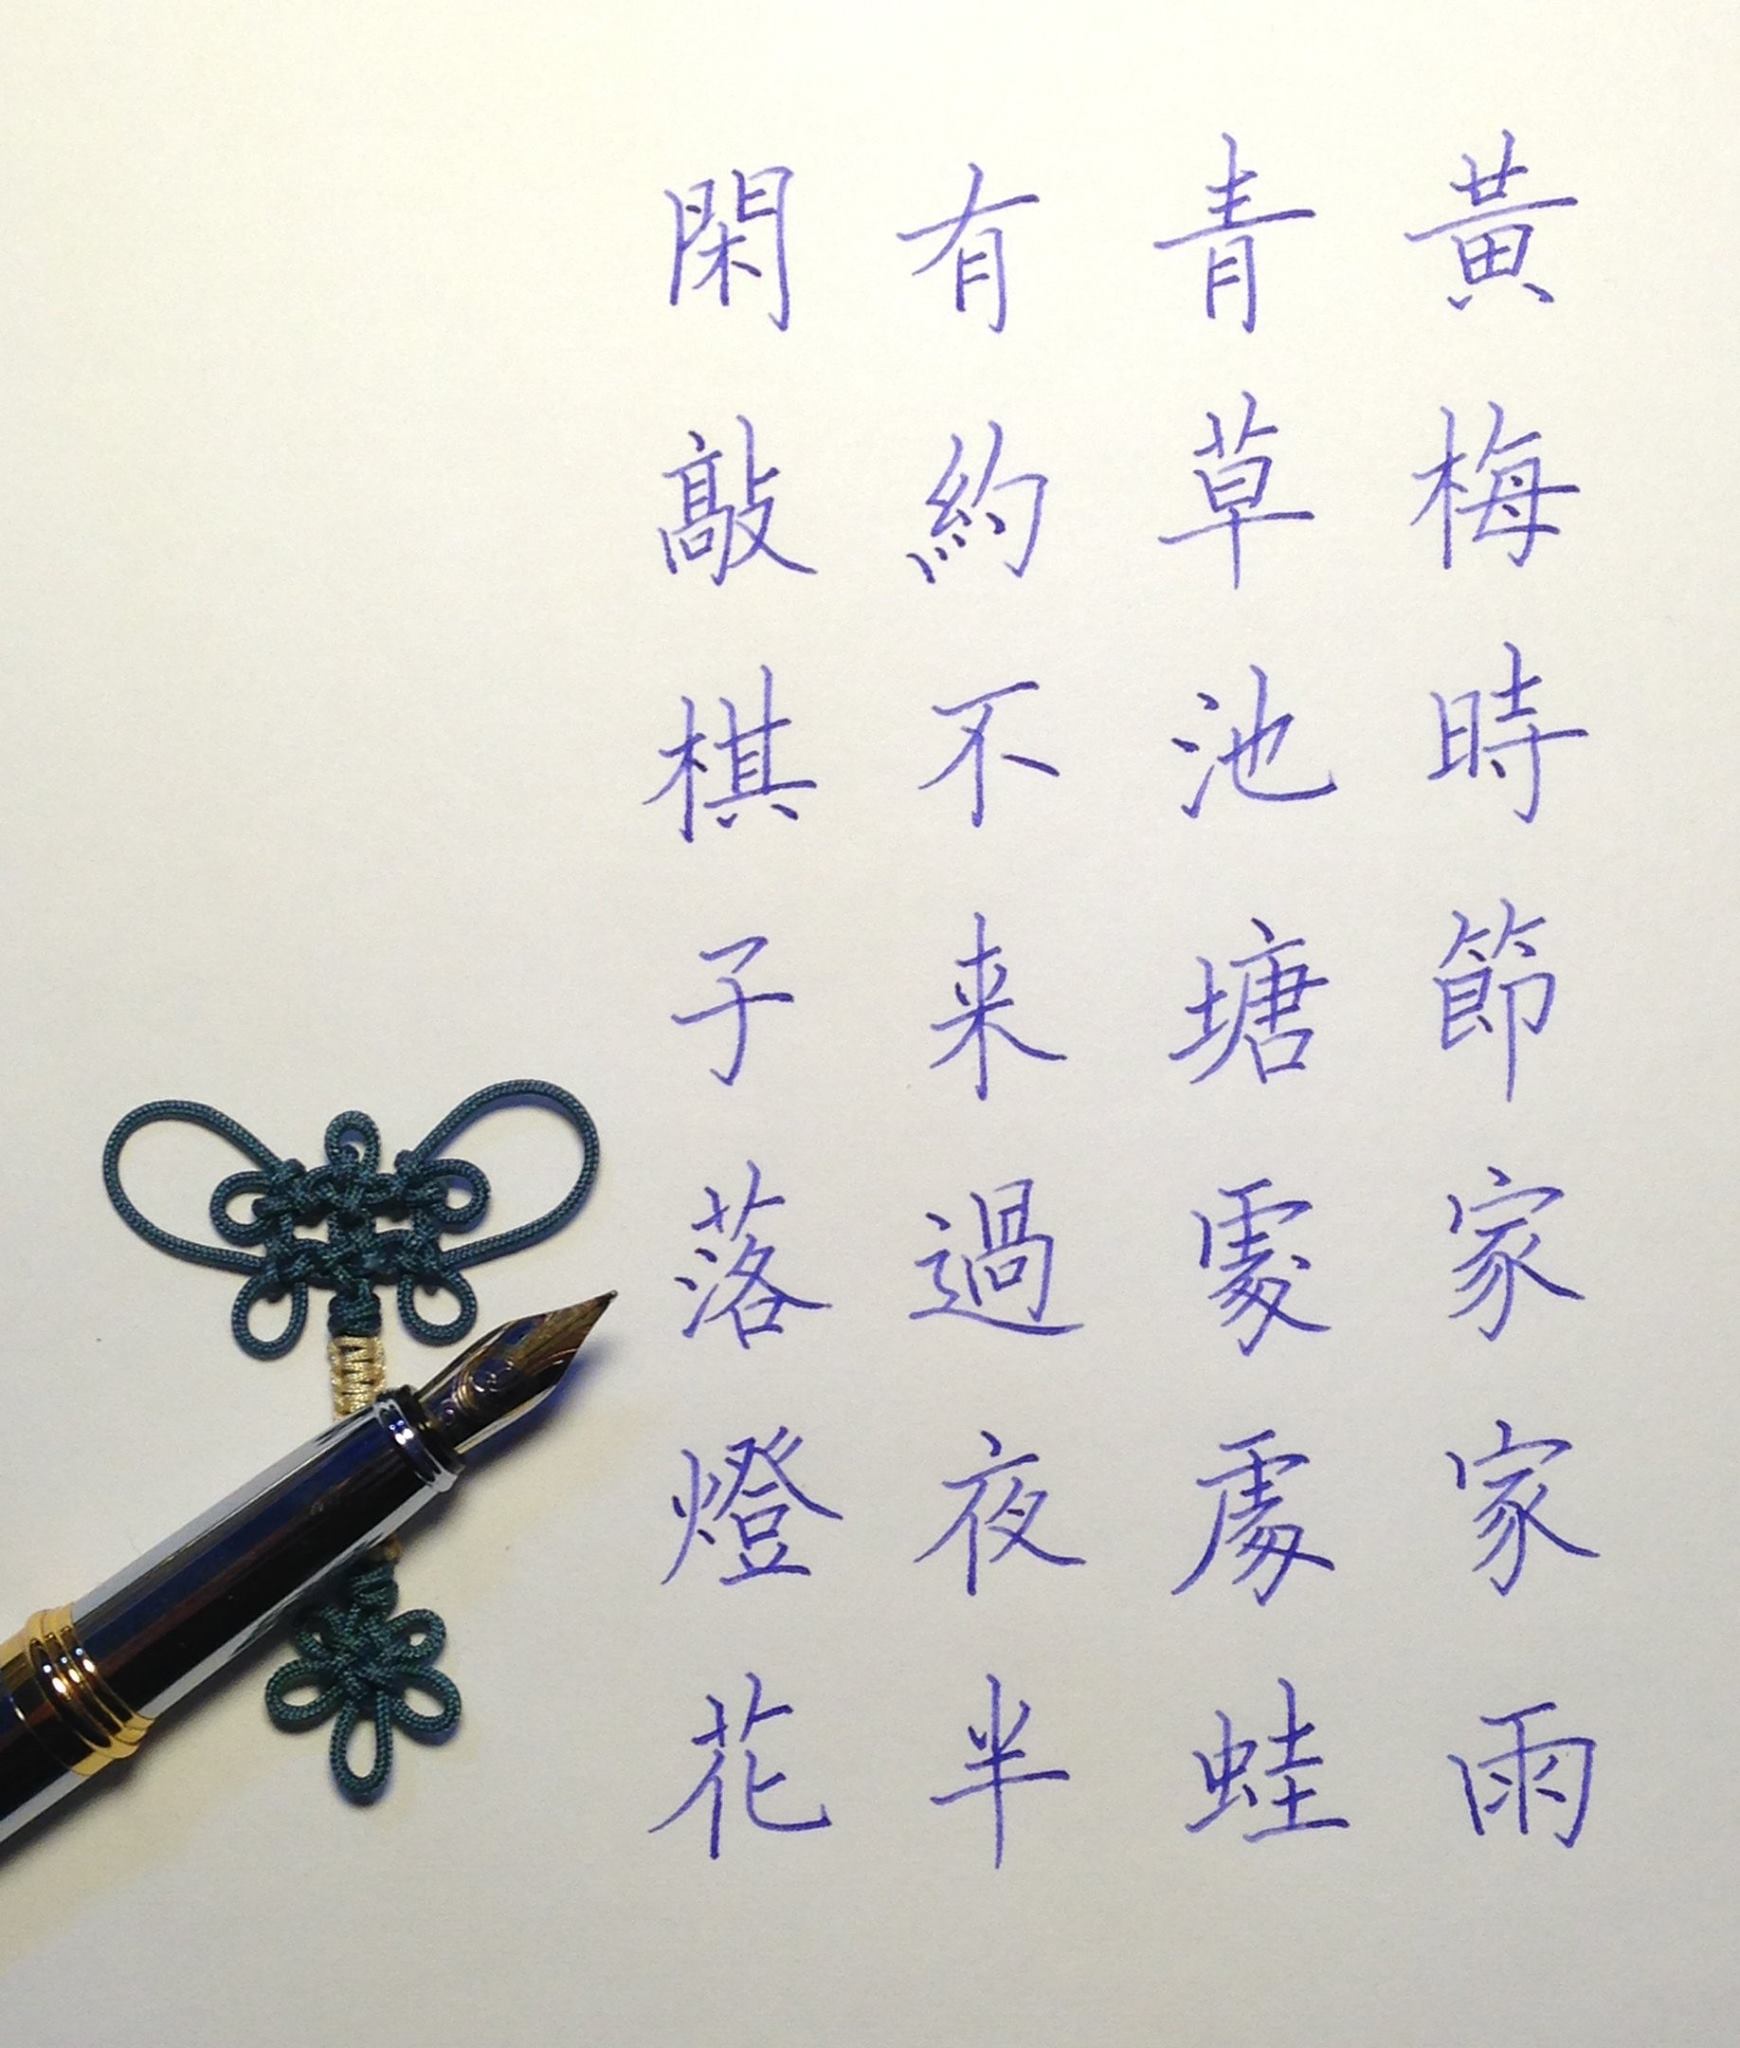 黃梅時節家家雨
青草池塘處處蛙
有約不来過夜半
閑敲棋子落燈花